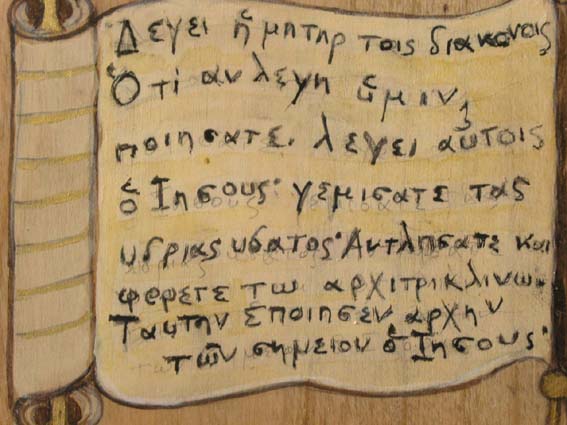 Δεγει ἥ μητηρ τοις διακονοις
Ὅτι αν λεγη ὕμιν,
ποιησατε. λεγει αὔτοις
ὁ Ιησους· γεμισατε τας
υδριας υδατος· Αντλησατε και
φερετε τω αρχιτρικλινω.
Ταυτην ἐποιησεν αρχην
τῶν σημειον ὁ Ἰησους·